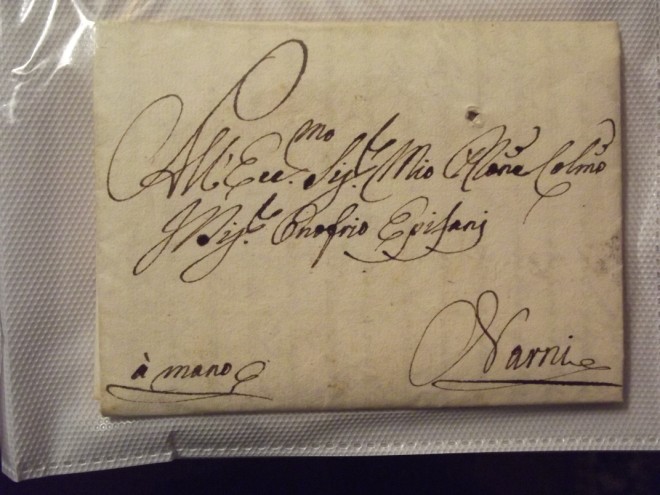 All' Ecc.mo Sig.r Mio P'rone Colmo
Il Sig.r Onofrio Epifani
à mano
Narni